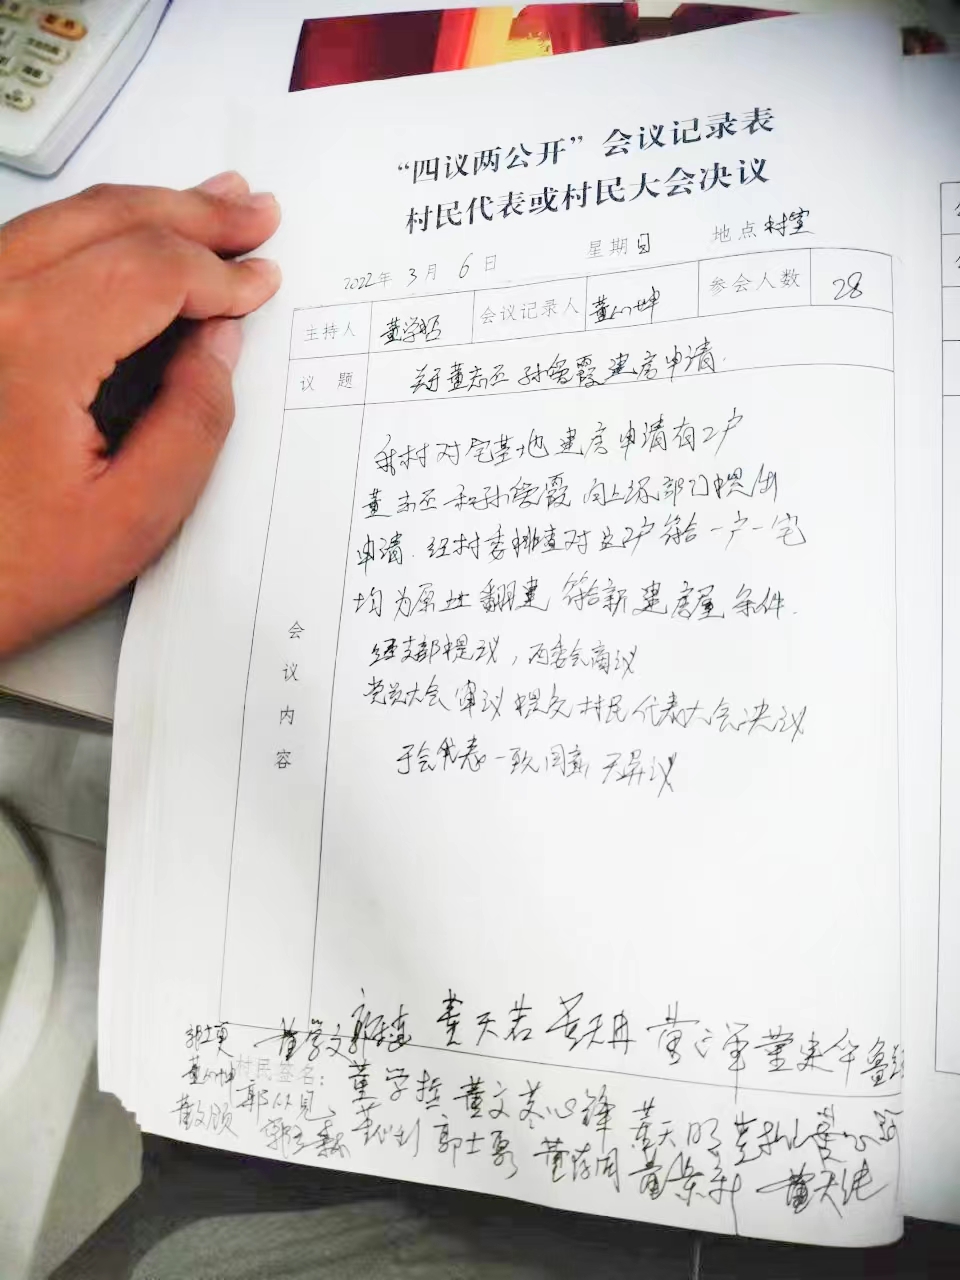 “四议两公开”会议记录表
村民代表或村民大会决议
2022年 3月 6日 星期日 地点 村室
主持人 董学哲 会议记录人 董 坤 参会人数 28
议题 关于董志丕 孙俊霞建房申请.
会议内容
我村对宅基地建房申请有2户
董志丕和孙俊霞 向上级部门提出
申请.经村委排查对这2户符合一户一宅
均为原址翻建 符合新建房屋条件.
经支部提议,两委会商议
党员大会审议 提交村民代表大会决议
于会代表一致同意,无异议
董学文 董天若 董天丹 董 军 董建华 鲁
村民签名:
董学哲 董文 锋 董天明
郭士勇 董天纯